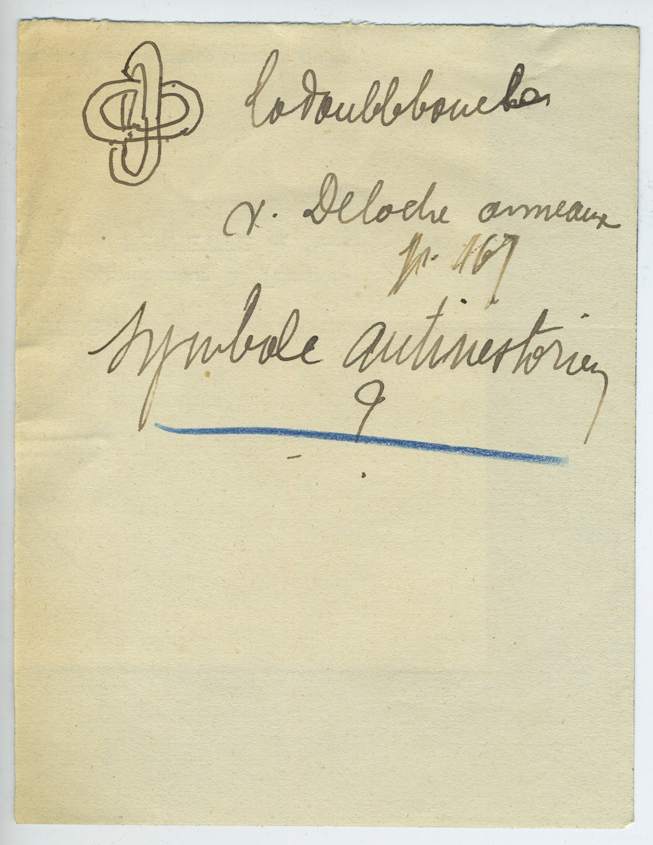 la double boucle
v. Deloche anneaux
p. 467
Symbole antinestorien
?